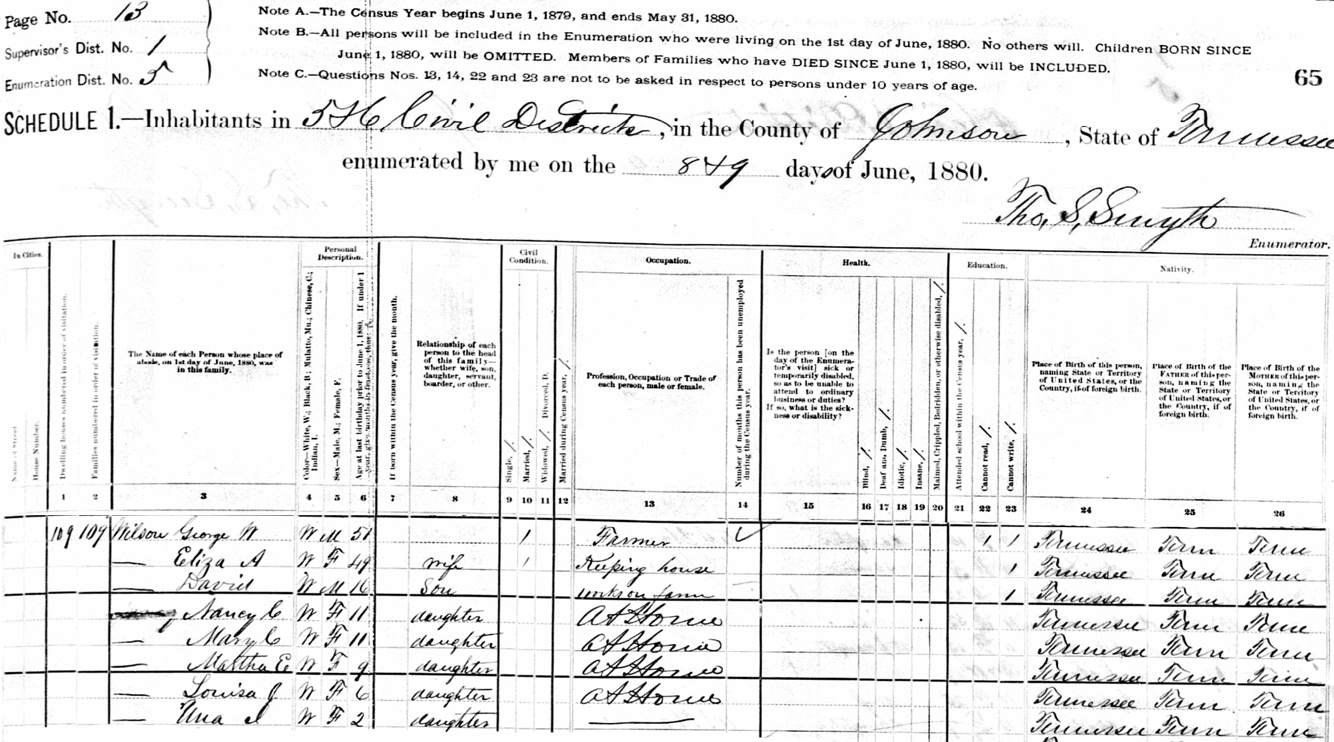 Page No. 13
Supervisor's Dist. No. 1
Enumeration Dist. No. 5
Note A.—The Census Year begins June 1, 1879, and ends May 31, 1880.
Note B.—All persons will be included in the Enumeration who were living on the 1st day of June, 1880. No others will. Children BORN SINCE
June 1, 1880, will be OMITTED. Members of Families who have DIED SINCE June 1, 1880, will be INCLUDED.
Note C.—Questions Nos. 13, 14, 22 and 23 are not to be asked in respect to persons under 10 years of age.
65
SCHEDULE 1.—Inhabitants in 5th Civil District, in the County of Johnson, State of Tennessee
enumerated by me on the 8 & 9 days of June, 1880.
Tho. S. Smyth
Enumerator.
In Cities.
Name of Street
House Number.
Dwelling houses numbered in order of visitation.
Families numbered in order of visitation.
The Name of each Person whose place of abode, on 1st day of June, 1880, was in this family.
Personal Description.
Color—White, W.; Black, B.; Mulatto, Mu.; Chinese, C.; Indian, I.
Sex—Male, M.; Female, F.
Age at last birthday prior to June 1, 1880. If under 1 year, give months in fractions, thus:
If born within the Census year, give the month.
Relationship of each person to the head of this family—whether wife, son, daughter, servant, boarder, or other.
Civil Condition.
Single, /.
Married, /.
Widowed, /. Divorced, D.
Married during Census year, /.
Occupation.
Profession, Occupation or Trade of each person, male or female.
Number of months this person has been unemployed during the Census year.
Health.
Is the person [on the day of the Enumerator's visit] sick or temporarily disabled, so as to be unable to attend to ordinary business or duties? If so, what is the sickness or disability?
Blind, /.
Deaf and Dumb, /.
Idiotic, /.
Insane, /.
Maimed, Crippled, Bedridden, or otherwise disabled, /.
Education.
Attended school within the Census year, /.
Cannot read, /.
Cannot write, /.
Nativity.
Place of Birth of this person, naming State or Territory of United States, or the Country, if of foreign birth.
Place of Birth of the FATHER of this person, naming the State or Territory of United States, or the Country, if of foreign birth.
Place of Birth of the MOTHER of this person, naming the State or Territory of United States, or the Country, if of foreign birth.
1 2 3 4 5 6 7 8 9 10 11 12 13 14 15 16 17 18 19 20 21 22 23 24 25 26
109 109 Wilson George W W M 51 / Farmer ✓ / / Tennessee Tenn Tenn
— Eliza A W F 49 wife / Keeping house / Tennessee Tenn Tenn
— David W M 16 Son works on farm / Tennessee Tenn Tenn
Nancy C W F 11 daughter At Home Tennessee Tenn Tenn
— Mary C W F 11 daughter At Home Tennessee Tenn Tenn
— Martha E W F 9 daughter At Home Tennessee Tenn Tenn
— Louisa J W F 6 daughter At Home Tennessee Tenn Tenn
— W F 2 daughter — Tennessee Tenn Tenn